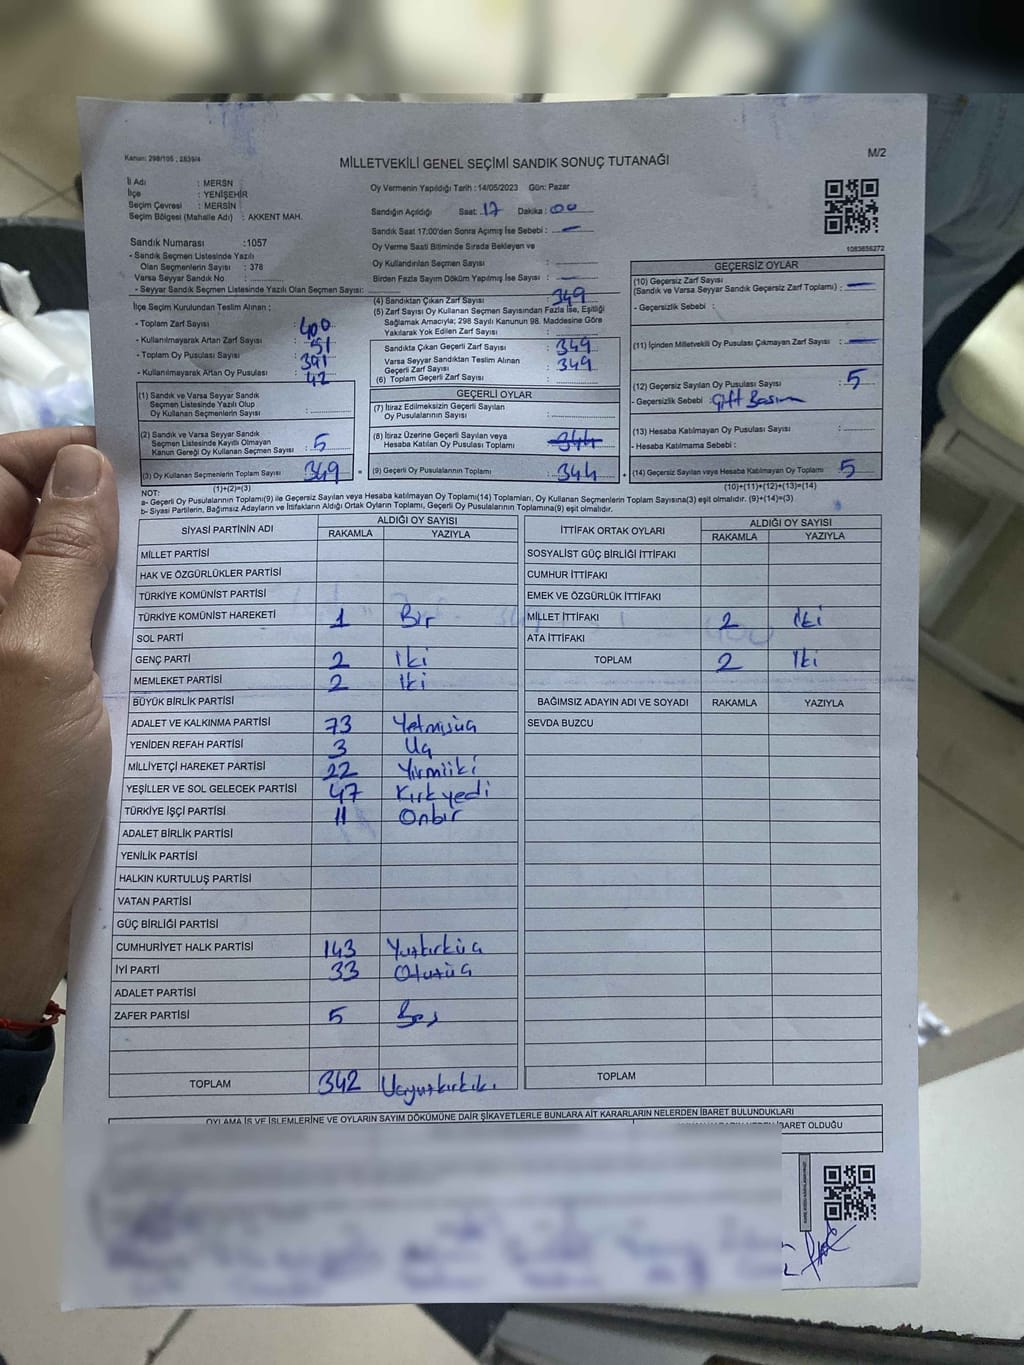 Kanun: 298/105 ; 2839/4
MİLLETVEKİLİ GENEL SEÇİMİ SANDIK SONUÇ TUTANAĞI
M/2
İl Adı : MERSİN
İlçe : YENİŞEHİR
Seçim Çevresi : MERSİN
Seçim Bölgesi (Mahalle Adı) : AKKENT MAH.
Sandık Numarası :1057
- Sandık Seçmen Listesinde Yazılı
Olan Seçmenlerin Sayısı : 378
Varsa Seyyar Sandık No :
- Seyyar Sandık Seçmen Listesinde Yazılı Olan Seçmen Sayısı:
Oy Vermenin Yapıldığı Tarih : 14/05/2023 Gün: Pazar
Sandığın Açıldığı Saat: 17 Dakika : 00
Sandık Saat 17:00'den Sonra Açılmış İse Sebebi : —
Oy Verme Saati Bitiminde Sırada Bekleyen ve
Oy Kullandırılan Seçmen Sayısı : —
Birden Fazla Sayım Döküm Yapılmış İse Sayısı : —
1083656272
İlçe Seçim Kurulundan Teslim Alınan ;
- Toplam Zarf Sayısı : 400
- Kullanılmayarak Artan Zarf Sayısı : 51
- Toplam Oy Pusulası Sayısı : 391
- Kullanılmayarak Artan Oy Pusulası : 42
(1) Sandık ve Varsa Seyyar Sandık
Seçmen Listesinde Yazılı Olup
Oy Kullanan Seçmenlerin Sayısı :
(2) Sandık ve Varsa Seyyar Sandık
Seçmen Listesinde Kayıtlı Olmayan
Kanun Gereği Oy Kullanan Seçmen Sayısı : 5
(3) Oy Kullanan Seçmenlerin Toplam Sayısı 349
(1)+(2)=(3)
(4) Sandıktan Çıkan Zarf Sayısı : 349
(5) Zarf Sayısı Oy Kullanan Seçmen Sayısından Fazla İse, Eşitliği
Sağlamak Amacıyla; 298 Sayılı Kanunun 98. Maddesine Göre
Yakılarak Yok Edilen Zarf Sayısı :
Sandıkta Çıkan Geçerli Zarf Sayısı : 349
Varsa Seyyar Sandıktan Teslim Alınan
Geçerli Zarf Sayısı : 349
(6) Toplam Geçerli Zarf Sayısı :
GEÇERLİ OYLAR
(7) İtiraz Edilmeksizin Geçerli Sayılan
Oy Pusulalarının Sayısı :
(8) İtiraz Üzerine Geçerli Sayılan veya
Hesaba Katılan Oy Pusulası Toplamı : 344
= (9) Geçerli Oy Pusulalarının Toplamı : 344
GEÇERSİZ OYLAR
(10) Geçersiz Zarf Sayısı
(Sandık ve Varsa Seyyar Sandık Geçersiz Zarf Toplamı) : —
- Geçersizlik Sebebi :
(11) İçinden Milletvekili Oy Pusulası Çıkmayan Zarf Sayısı : —
(12) Geçersiz Sayılan Oy Pusulası Sayısı : 5
- Geçersizlik Sebebi : Çift Basım
(13) Hesaba Katılmayan Oy Pusulası Sayısı :
- Hesaba Katılmama Sebebi :
+ (14) Geçersiz Sayılan veya Hesaba Katılmayan Oy Toplamı : 5
(10)+(11)+(12)+(13)=(14)
NOT:
a- Geçerli Oy Pusulalarının Toplamı(9) ile Geçersiz Sayılan veya Hesaba katılmayan Oy Toplamı(14) Toplamları, Oy Kullanan Seçmenlerin Toplam Sayısına(3) eşit olmalıdır. (9)+(14)=(3)
b- Siyasi Partilerin, Bağımsız Adayların ve İttifakların Aldığı Ortak Oyların Toplamı, Geçerli Oy Pusulalarının Toplamına(9) eşit olmalıdır.
SİYASİ PARTİNİN ADI ALDIĞI OY SAYISI
RAKAMLA YAZIYLA
MİLLET PARTİSİ
HAK VE ÖZGÜRLÜKLER PARTİSİ
TÜRKİYE KOMÜNİST PARTİSİ
TÜRKİYE KOMÜNİST HAREKETİ 1 Bir
SOL PARTİ
GENÇ PARTİ 2 İki
MEMLEKET PARTİSİ 2 İki
BÜYÜK BİRLİK PARTİSİ
ADALET VE KALKINMA PARTİSİ 73 Yetmişüç
YENİDEN REFAH PARTİSİ 3 Üç
MİLLİYETÇİ HAREKET PARTİSİ 22 Yirmiiki
YEŞİLLER VE SOL GELECEK PARTİSİ 47 Kırkyedi
TÜRKİYE İŞÇİ PARTİSİ 11 Onbir
ADALET BİRLİK PARTİSİ
YENİLİK PARTİSİ
HALKIN KURTULUŞ PARTİSİ
VATAN PARTİSİ
GÜÇ BİRLİĞİ PARTİSİ
CUMHURİYET HALK PARTİSİ 143 Yüzkırküç
İYİ PARTİ 33 Otuzüç
ADALET PARTİSİ
ZAFER PARTİSİ 5 Beş
TOPLAM 342 Üçyüzkırkiki
İTTİFAK ORTAK OYLARI ALDIĞI OY SAYISI
RAKAMLA YAZIYLA
SOSYALİST GÜÇ BİRLİĞİ İTTİFAKI
CUMHUR İTTİFAKI
EMEK VE ÖZGÜRLÜK İTTİFAKI
MİLLET İTTİFAKI 2 İki
ATA İTTİFAKI
TOPLAM 2 İki
BAĞIMSIZ ADAYIN ADI VE SOYADI RAKAMLA YAZIYLA
SEVDA BUZCU
TOPLAM
OYLAMA İŞ VE İŞLEMLERİNE VE OYLARIN SAYIM DÖKÜMÜNE DAİR ŞİKAYETLERLE BUNLARA AİT KARARLARIN NELERDEN İBARET BULUNDUKLARI
İBARET OLDUĞU